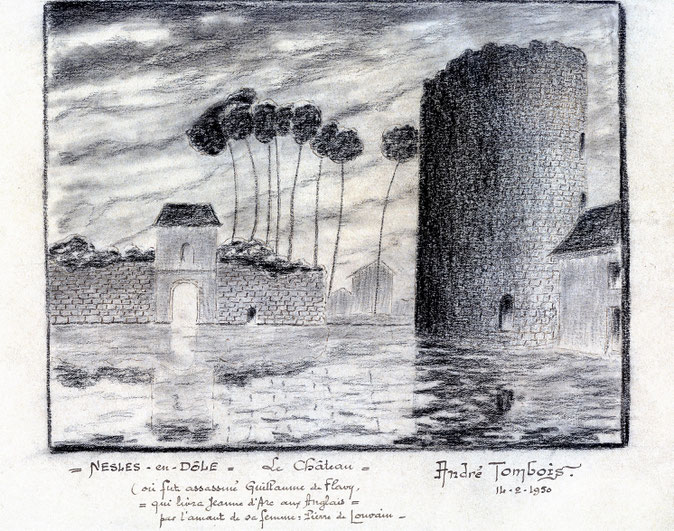 = NESLES - en - DÔLE = Le Château =
(où fut assassiné Guillaume de Flavy,
= qui livra Jeanne d'Arc aux Anglais =
par l'amant de sa femme : Pierre de Louvain -
André Tombois.
14-2-1950